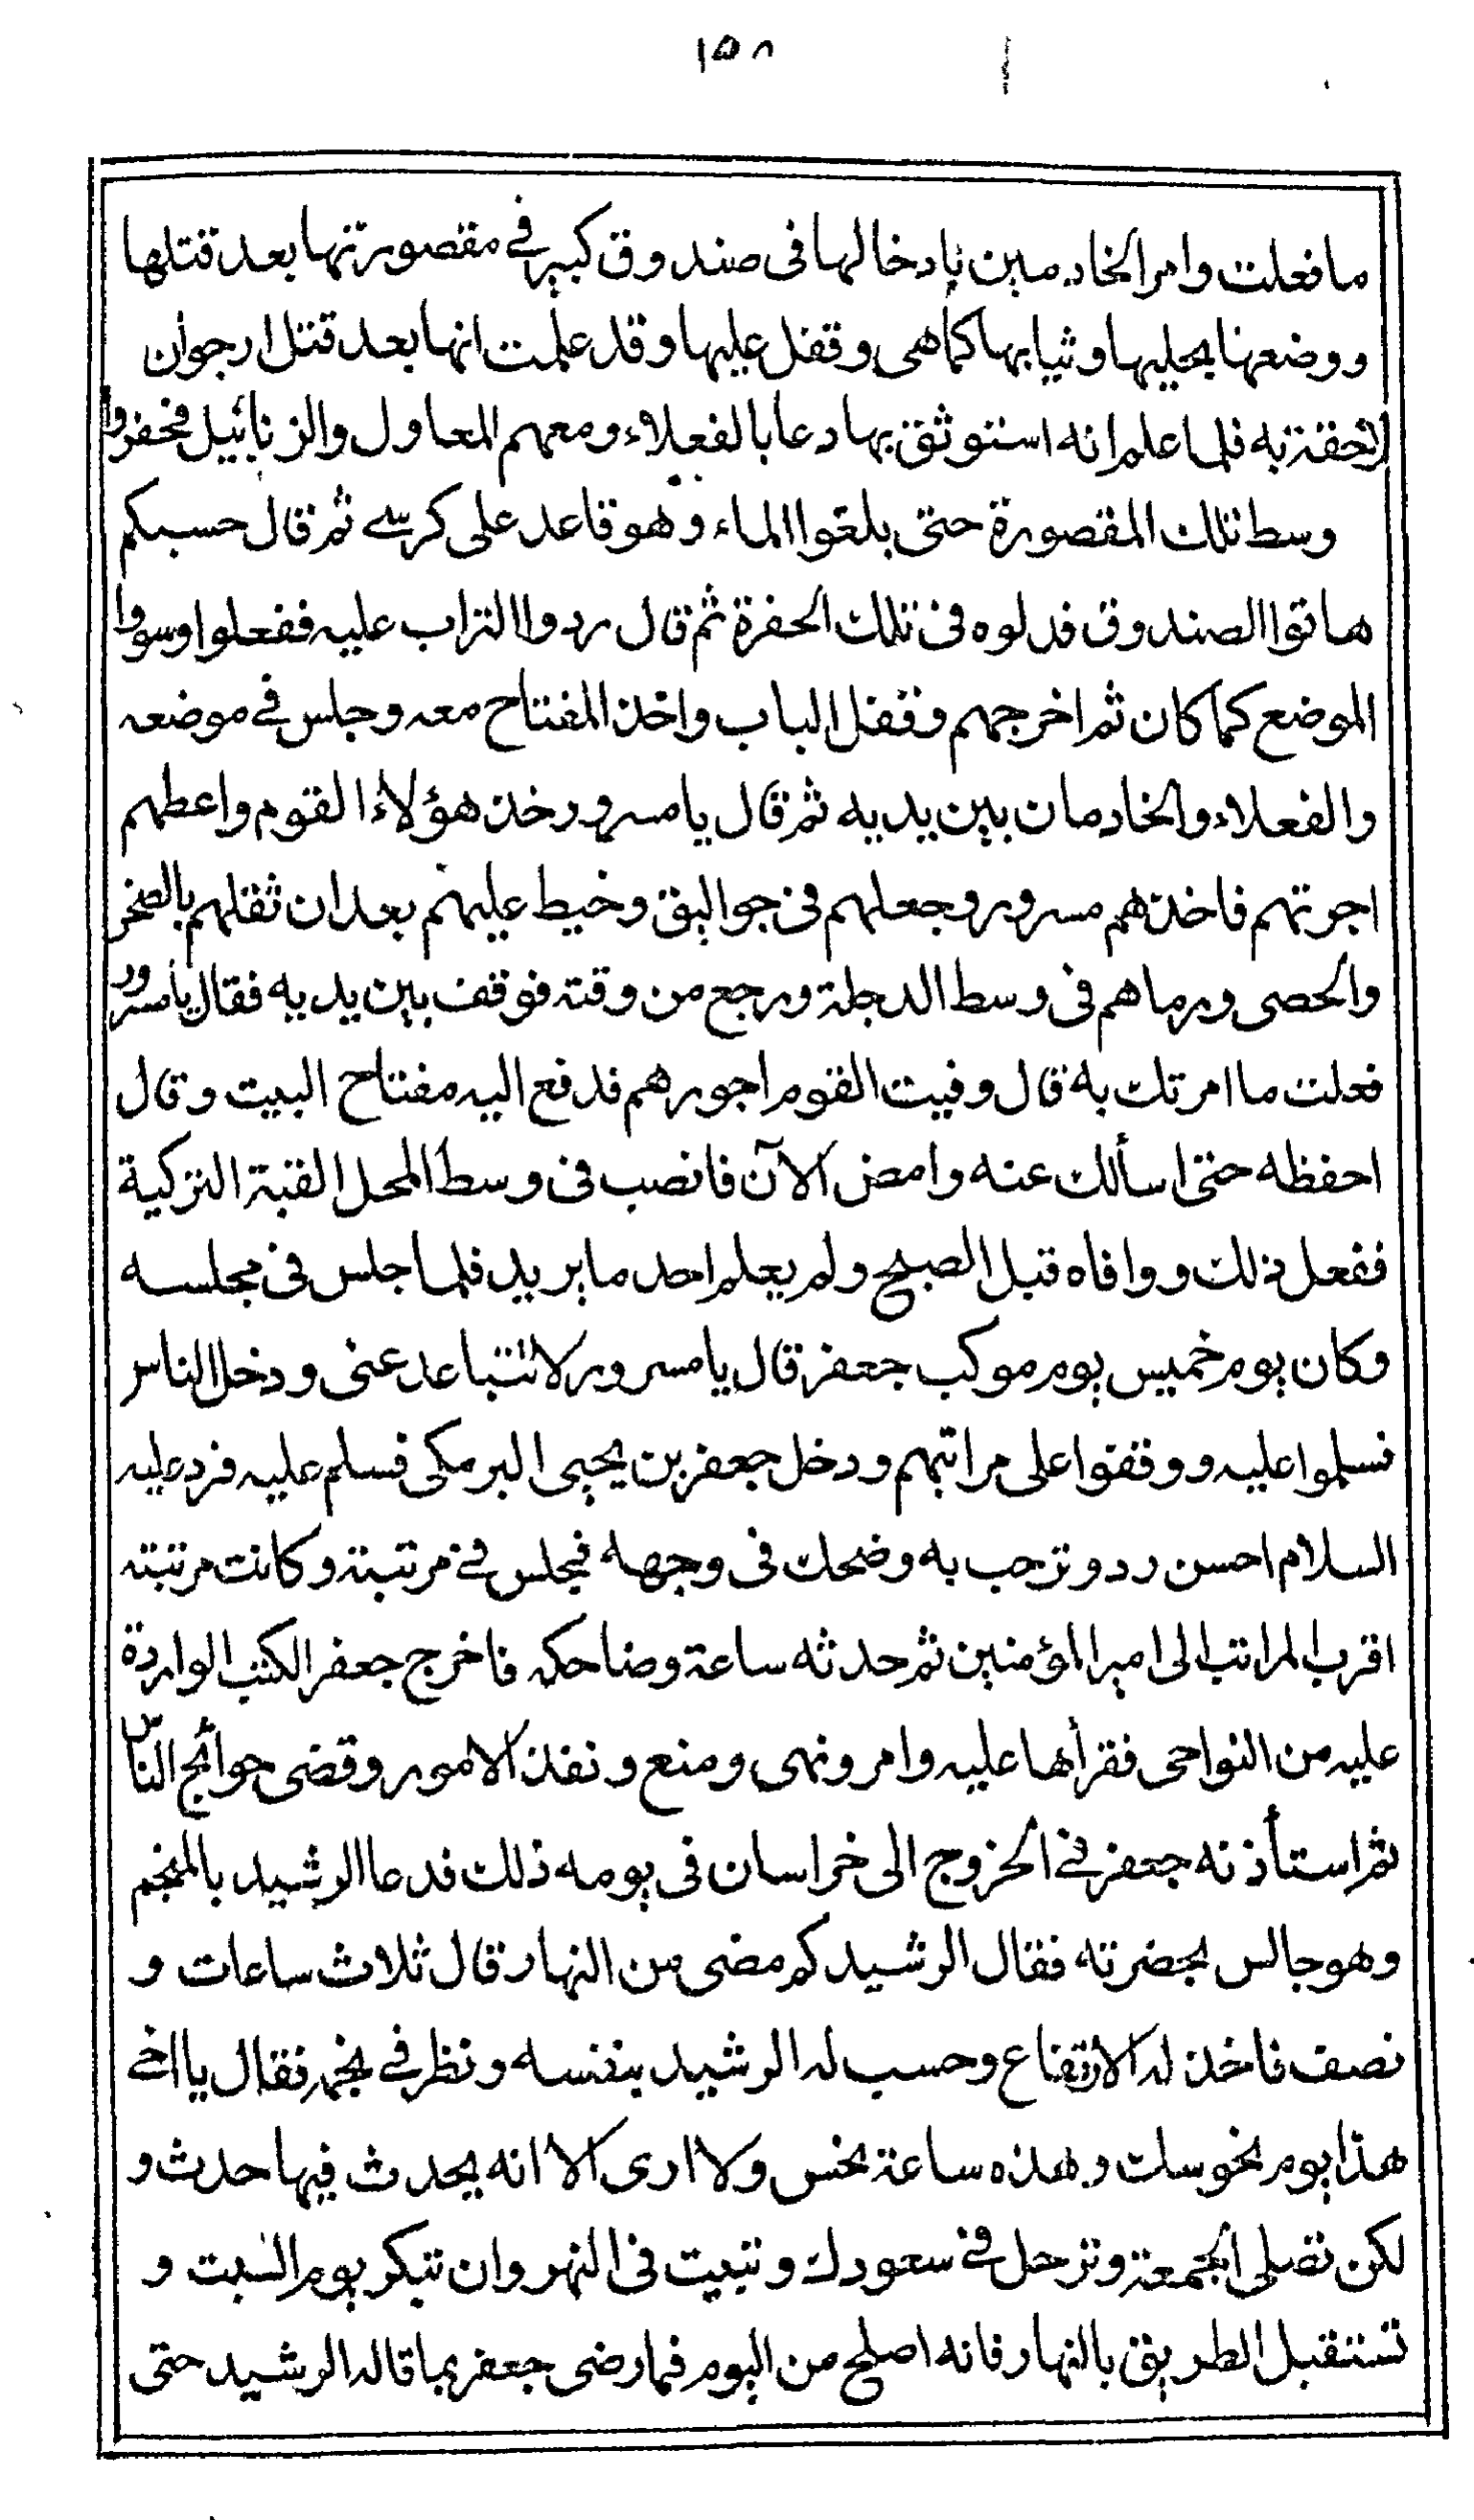 ١٥٨
ما فعلت وامر الخادمين بادخالها فى صندوق كبير في مقصورتها بعد قتلها
ووضعها بحليها وثيابها كما هى وقفل عليها وقد علمت انها بعد قتل ارجوان
لاحقة به فلما علم انه استوثق بها دعا بالفعلاء ومعهم المعاول والزنابيل فحفروا
وسط تلك المقصورة حتى بلغوا الماء وهو قاعد على كرسي ثم قال حسبكم
هاتوا الصندوق فدلوه فى تلك الحفرة ثم قال ردوا التراب عليه ففعلوا وسووا
الموضع كما كان ثم اخرجهم وقفل الباب واخذ المفتاح معه وجلس في موضعه
والفعلاء والخادمان بين يديه ثم قال يا مسرور خذ هؤلاء القوم واعطهم
اجرتهم فاخذهم مسرور وجعلهم فى جواليق وخيط عليهم بعد ان ثقلهم بالصخر
والحصى ورماهم فى وسط الدجلة ورجع من وقته فوقف بين يديه فقال يا مسرور
فعلت ما امرتك به قال وفيت القوم اجورهم فدفع اليه مفتاح البيت وقال
احفظه حتى اسألك عنه وامض الآن فانصب فى وسط المحل القبة التركية
ففعل ذلك ووافاه قبل الصبح ولم يعلم احد ما يريد فلما جلس فى مجلسه
وكان يوم خميس يوم موكب جعفر قال يا مسرور لا تتباعد عنى ودخل الناس
فسلموا عليه ووقفوا على مراتبهم ودخل جعفر بن يحيى البرمكى فسلم عليه فرد عليه
السلام احسن رد وترحب به وضحك فى وجهه فجلس في مرتبة وكانت مرتبته
اقرب المراتب الى امير المؤمنين ثم حدثه ساعة وضاحكه فاخرج جعفر الكتب الواردة
عليه من النواحى فقرأها عليه وامر ونهى ومنع ونفذ الامور وقضى حوائج الناس
ثم استأذنه جعفر في الخروج الى خراسان فى يومه ذلك فدعا الرشيد بالمنجم
وهو جالس بحضرته فقال الرشيد كم مضى من النهار قال ثلاث ساعات و
نصف فاخذ له الارتفاع وحسب له الرشيد بنفسه ونظر في نجمه فقال يا اخي
هذا يوم نحوسك وهذه ساعة نحس ولا ارى الا انه يحدث فيها حدث و
لكن تصلى الجمعة وترحل في سعودك وتبيت فى النهروان تبكر يوم السبت و
تستقبل الطريق بالنهار فانه اصلح من اليوم فما رضى جعفر بما قاله الرشيد حتى